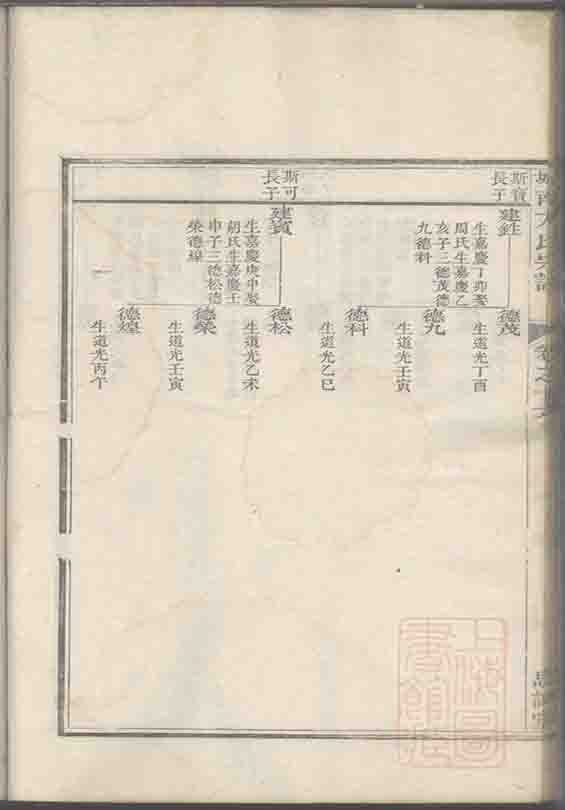 城南方氏宗譜
卷之
斯寶
長子
建鉎
生嘉慶丁卯娶
周氏生嘉慶乙
亥子三德茂德
九德科
德茂
生道光丁酉
德九
生道光壬寅
德科
生道光乙巳
斯可
長子
建
生嘉慶庚申娶
胡氏生嘉慶壬
申子三德松德
榮德
德松
生道光乙未
德榮
生道光壬寅
德
生道光丙午
上海圖
書館藏